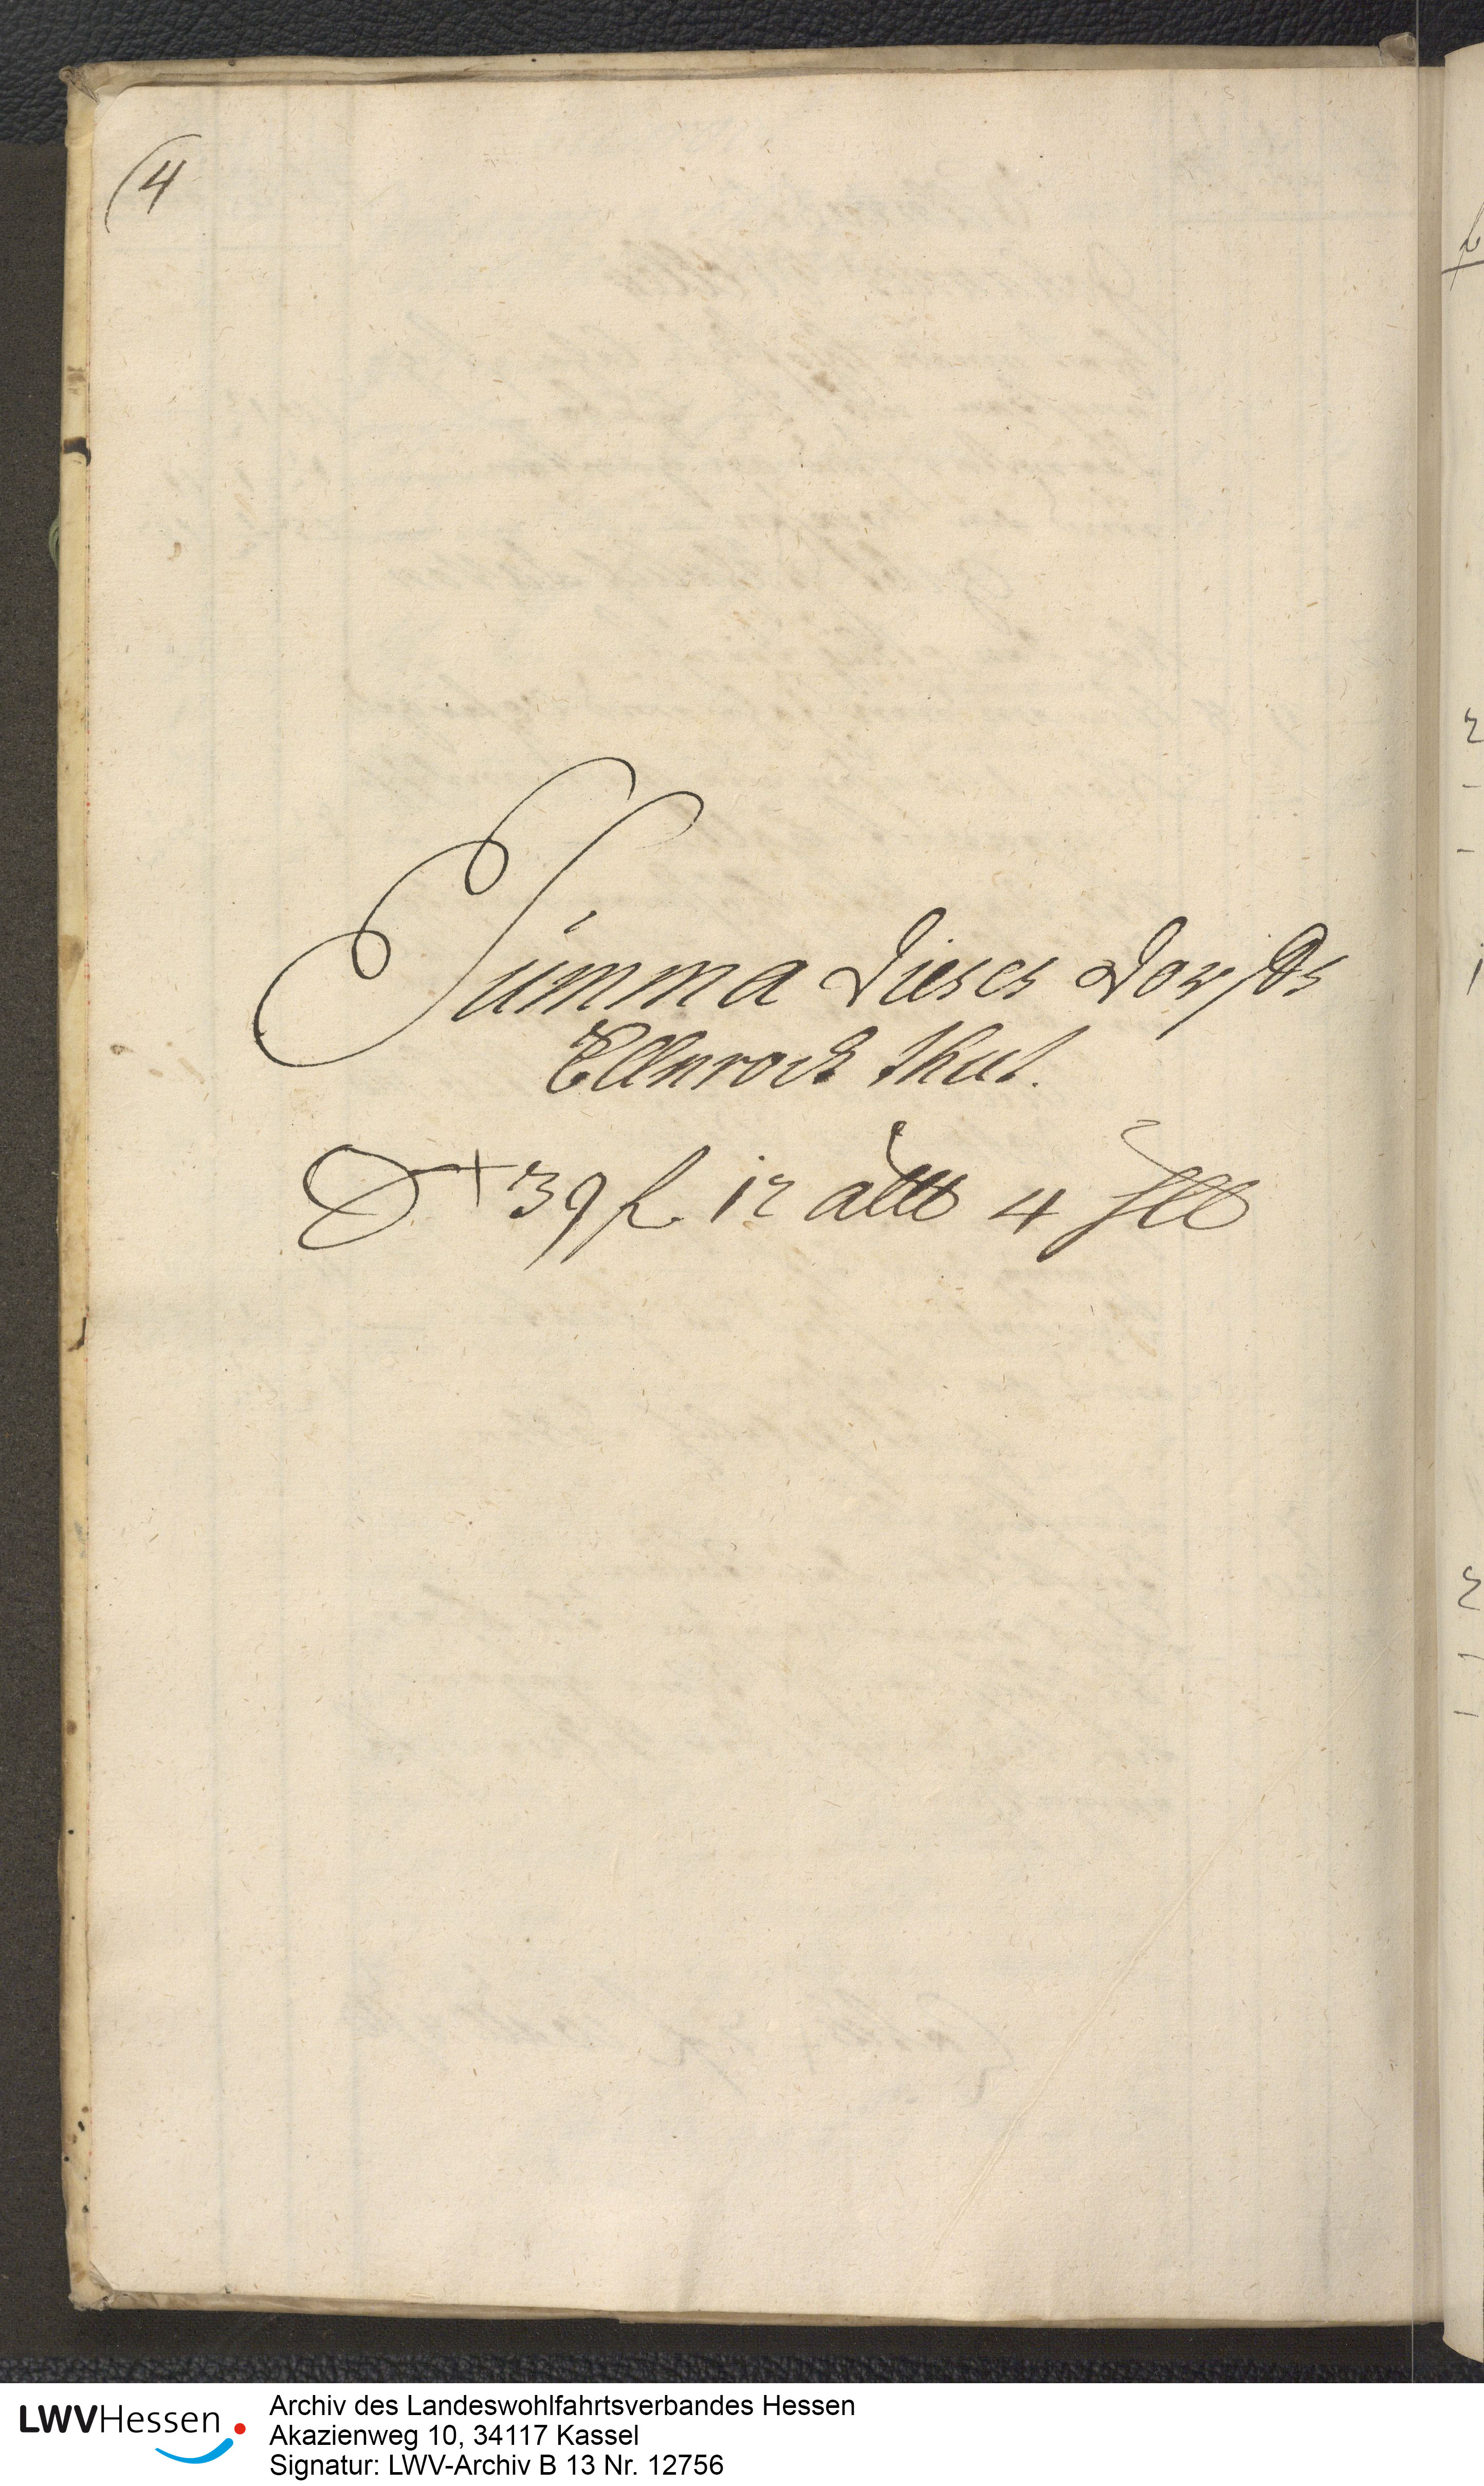 (4
Summa dieses Dorffs
Ellnrodt thut.
39 fl 12 alb 4 hlb
LWVHessen
Archiv des Landeswohlfahrtsverbandes Hessen
Akazienweg 10, 34117 Kassel
Signatur: LWV-Archiv B 13 Nr. 12756